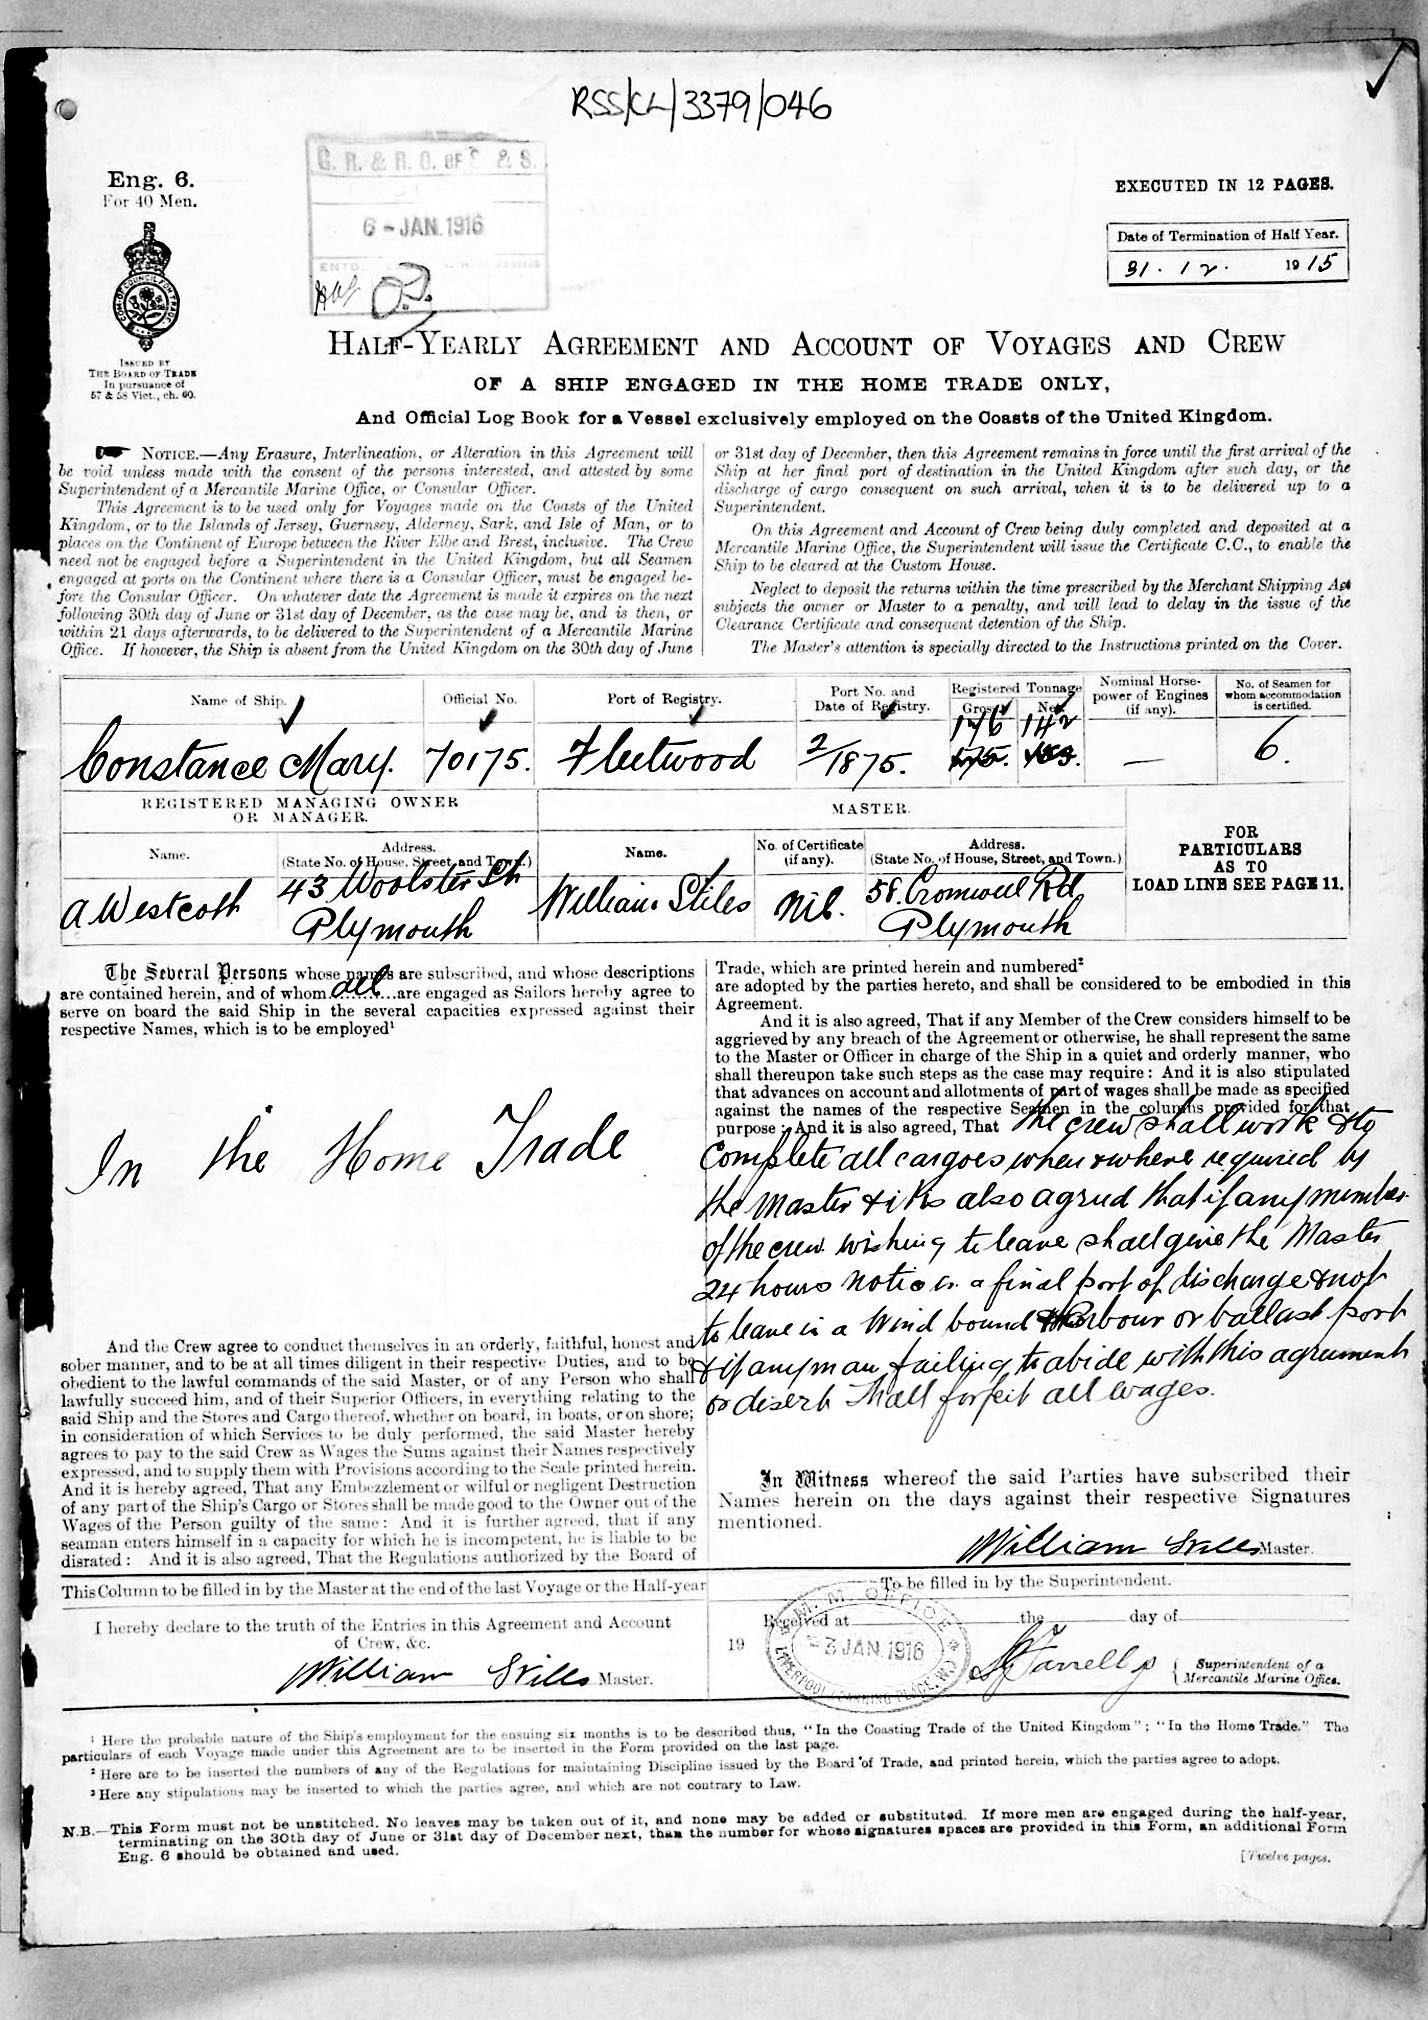 RSS/CL/3379/046
Eng. 6.
For 40 Men.
G. R. & R. O. OF S. & S.
6 - JAN. 1916
EXECUTED IN 12 PAGES.
Date of Termination of Half Year.
31. 12. 1915
COM. OF COUNCIL FOR TRADE
ISSUED BY
THE BOARD OF TRADE
In pursuance of
57 & 58 Vict., ch. 60.
HALF-YEARLY AGREEMENT AND ACCOUNT OF VOYAGES AND CREW
OF A SHIP ENGAGED IN THE HOME TRADE ONLY,
And Official Log Book for a Vessel exclusively employed on the Coasts of the United Kingdom.
NOTICE.—Any Erasure, Interlineation, or Alteration in this Agreement will
be void unless made with the consent of the persons interested, and attested by some
Superintendent of a Mercantile Marine Office, or Consular Officer.
This Agreement is to be used only for Voyages made on the Coasts of the United
Kingdom, or to the Islands of Jersey, Guernsey, Alderney, Sark, and Isle of Man, or to
places on the Continent of Europe between the River Elbe and Brest, inclusive. The Crew
need not be engaged before a Superintendent in the United Kingdom, but all Seamen
engaged at ports on the Continent where there is a Consular Officer, must be engaged be-
fore the Consular Officer. On whatever date the Agreement is made it expires on the next
following 30th day of June or 31st day of December, as the case may be, and is then, or
within 21 days afterwards, to be delivered to the Superintendent of a Mercantile Marine
Office. If however, the Ship is absent from the United Kingdom on the 30th day of June
or 31st day of December, then this Agreement remains in force until the first arrival of the
Ship at her final port of destination in the United Kingdom after such day, or the
discharge of cargo consequent on such arrival, when it is to be delivered up to a
Superintendent.
On this Agreement and Account of Crew being duly completed and deposited at a
Mercantile Marine Office, the Superintendent will issue the Certificate C.C., to enable the
Ship to be cleared at the Custom House.
Neglect to deposit the returns within the time prescribed by the Merchant Shipping Act
subjects the owner or Master to a penalty, and will lead to delay in the issue of the
Clearance Certificate and consequent detention of the Ship.
The Master's attention is specially directed to the Instructions printed on the Cover.
Name of Ship. Official No. Port of Registry. Port No. and Date of Registry. Registered Tonnage Gross Net Nominal Horse-power of Engines (if any). No. of Seamen for whom accommodation is certified.
176 142
Constance Mary. 70175. Fleetwood 2/1875. 175. — 6.
REGISTERED MANAGING OWNER
OR MANAGER.
MASTER.
Name. Address. (State No. of House, Street, and Town.) Name. No. of Certificate (if any). Address. (State No. of House, Street, and Town.)
FOR
PARTICULARS
AS TO
LOAD LINE SEE PAGE 11.
A Westcott 43 Woolster St Plymouth William Stiles Nil. 58. Cromwell Rd, Plymouth
The Several Persons whose names are subscribed, and whose descriptions
are contained herein, and of whom all are engaged as Sailors hereby agree to
serve on board the said Ship in the several capacities expressed against their
respective Names, which is to be employed¹
In the Home Trade
And the Crew agree to conduct themselves in an orderly, faithful, honest and
sober manner, and to be at all times diligent in their respective Duties, and to be
obedient to the lawful commands of the said Master, or of any Person who shall
lawfully succeed him, and of their Superior Officers, in everything relating to the
said Ship and the Stores and Cargo thereof, whether on board, in boats, or on shore;
in consideration of which Services to be duly performed, the said Master hereby
agrees to pay to the said Crew as Wages the Sums against their Names respectively
expressed, and to supply them with Provisions according to the Scale printed herein.
And it is hereby agreed, That any Embezzlement or wilful or negligent Destruction
of any part of the Ship's Cargo or Stores shall be made good to the Owner out of the
Wages of the Person guilty of the same: And it is further agreed, that if any
seaman enters himself in a capacity for which he is incompetent, he is liable to be
disrated: And it is also agreed, That the Regulations authorized by the Board of
Trade, which are printed herein and numbered²
are adopted by the parties hereto, and shall be considered to be embodied in this
Agreement.
And it is also agreed, That if any Member of the Crew considers himself to be
aggrieved by any breach of the Agreement or otherwise, he shall represent the same
to the Master or Officer in charge of the Ship in a quiet and orderly manner, who
shall thereupon take such steps as the case may require: And it is also stipulated
that advances on account and allotments of part of wages shall be made as specified
against the names of the respective Seamen in the columns provided for that
purpose: And it is also agreed, That the crew shall work & to
Complete all cargoes when & where required by
the Master & it is also agreed that if any member
of the crew wishing to leave shall give the Master
24 hours notice in a final port of discharge & not
to leave in a Wind bound Harbour or ballast port
& if any man failing to abide with this agreement
or desert shall forfeit all wages.
In Witness whereof the said Parties have subscribed their
Names herein on the days against their respective Signatures
mentioned.
William Stiles Master.
This Column to be filled in by the Master at the end of the last Voyage or the Half-year
I hereby declare to the truth of the Entries in this Agreement and Account
of Crew, &c.
William Stiles Master.
To be filled in by the Superintendent.
Received at the day of
19
M. M. OFFICE
3 JAN. 1916
LIVERPOOL CANNING PLACE
Farrell
Superintendent of a
Mercantile Marine Office.
¹ Here the probable nature of the Ship's employment for the ensuing six months is to be described thus, "In the Coasting Trade of the United Kingdom"; "In the Home Trade." The
particulars of each Voyage made under this Agreement are to be inserted in the Form provided on the last page.
² Here are to be inserted the numbers of any of the Regulations for maintaining Discipline issued by the Board of Trade, and printed herein, which the parties agree to adopt.
³ Here any stipulations may be inserted to which the parties agree, and which are not contrary to Law.
N.B.—This Form must not be unstitched. No leaves may be taken out of it, and none may be added or substituted. If more men are engaged during the half-year,
terminating on the 30th day of June or 31st day of December next, than the number for whose signatures spaces are provided in this Form, an additional Form
Eng. 6 should be obtained and used.
[Twelve pages.